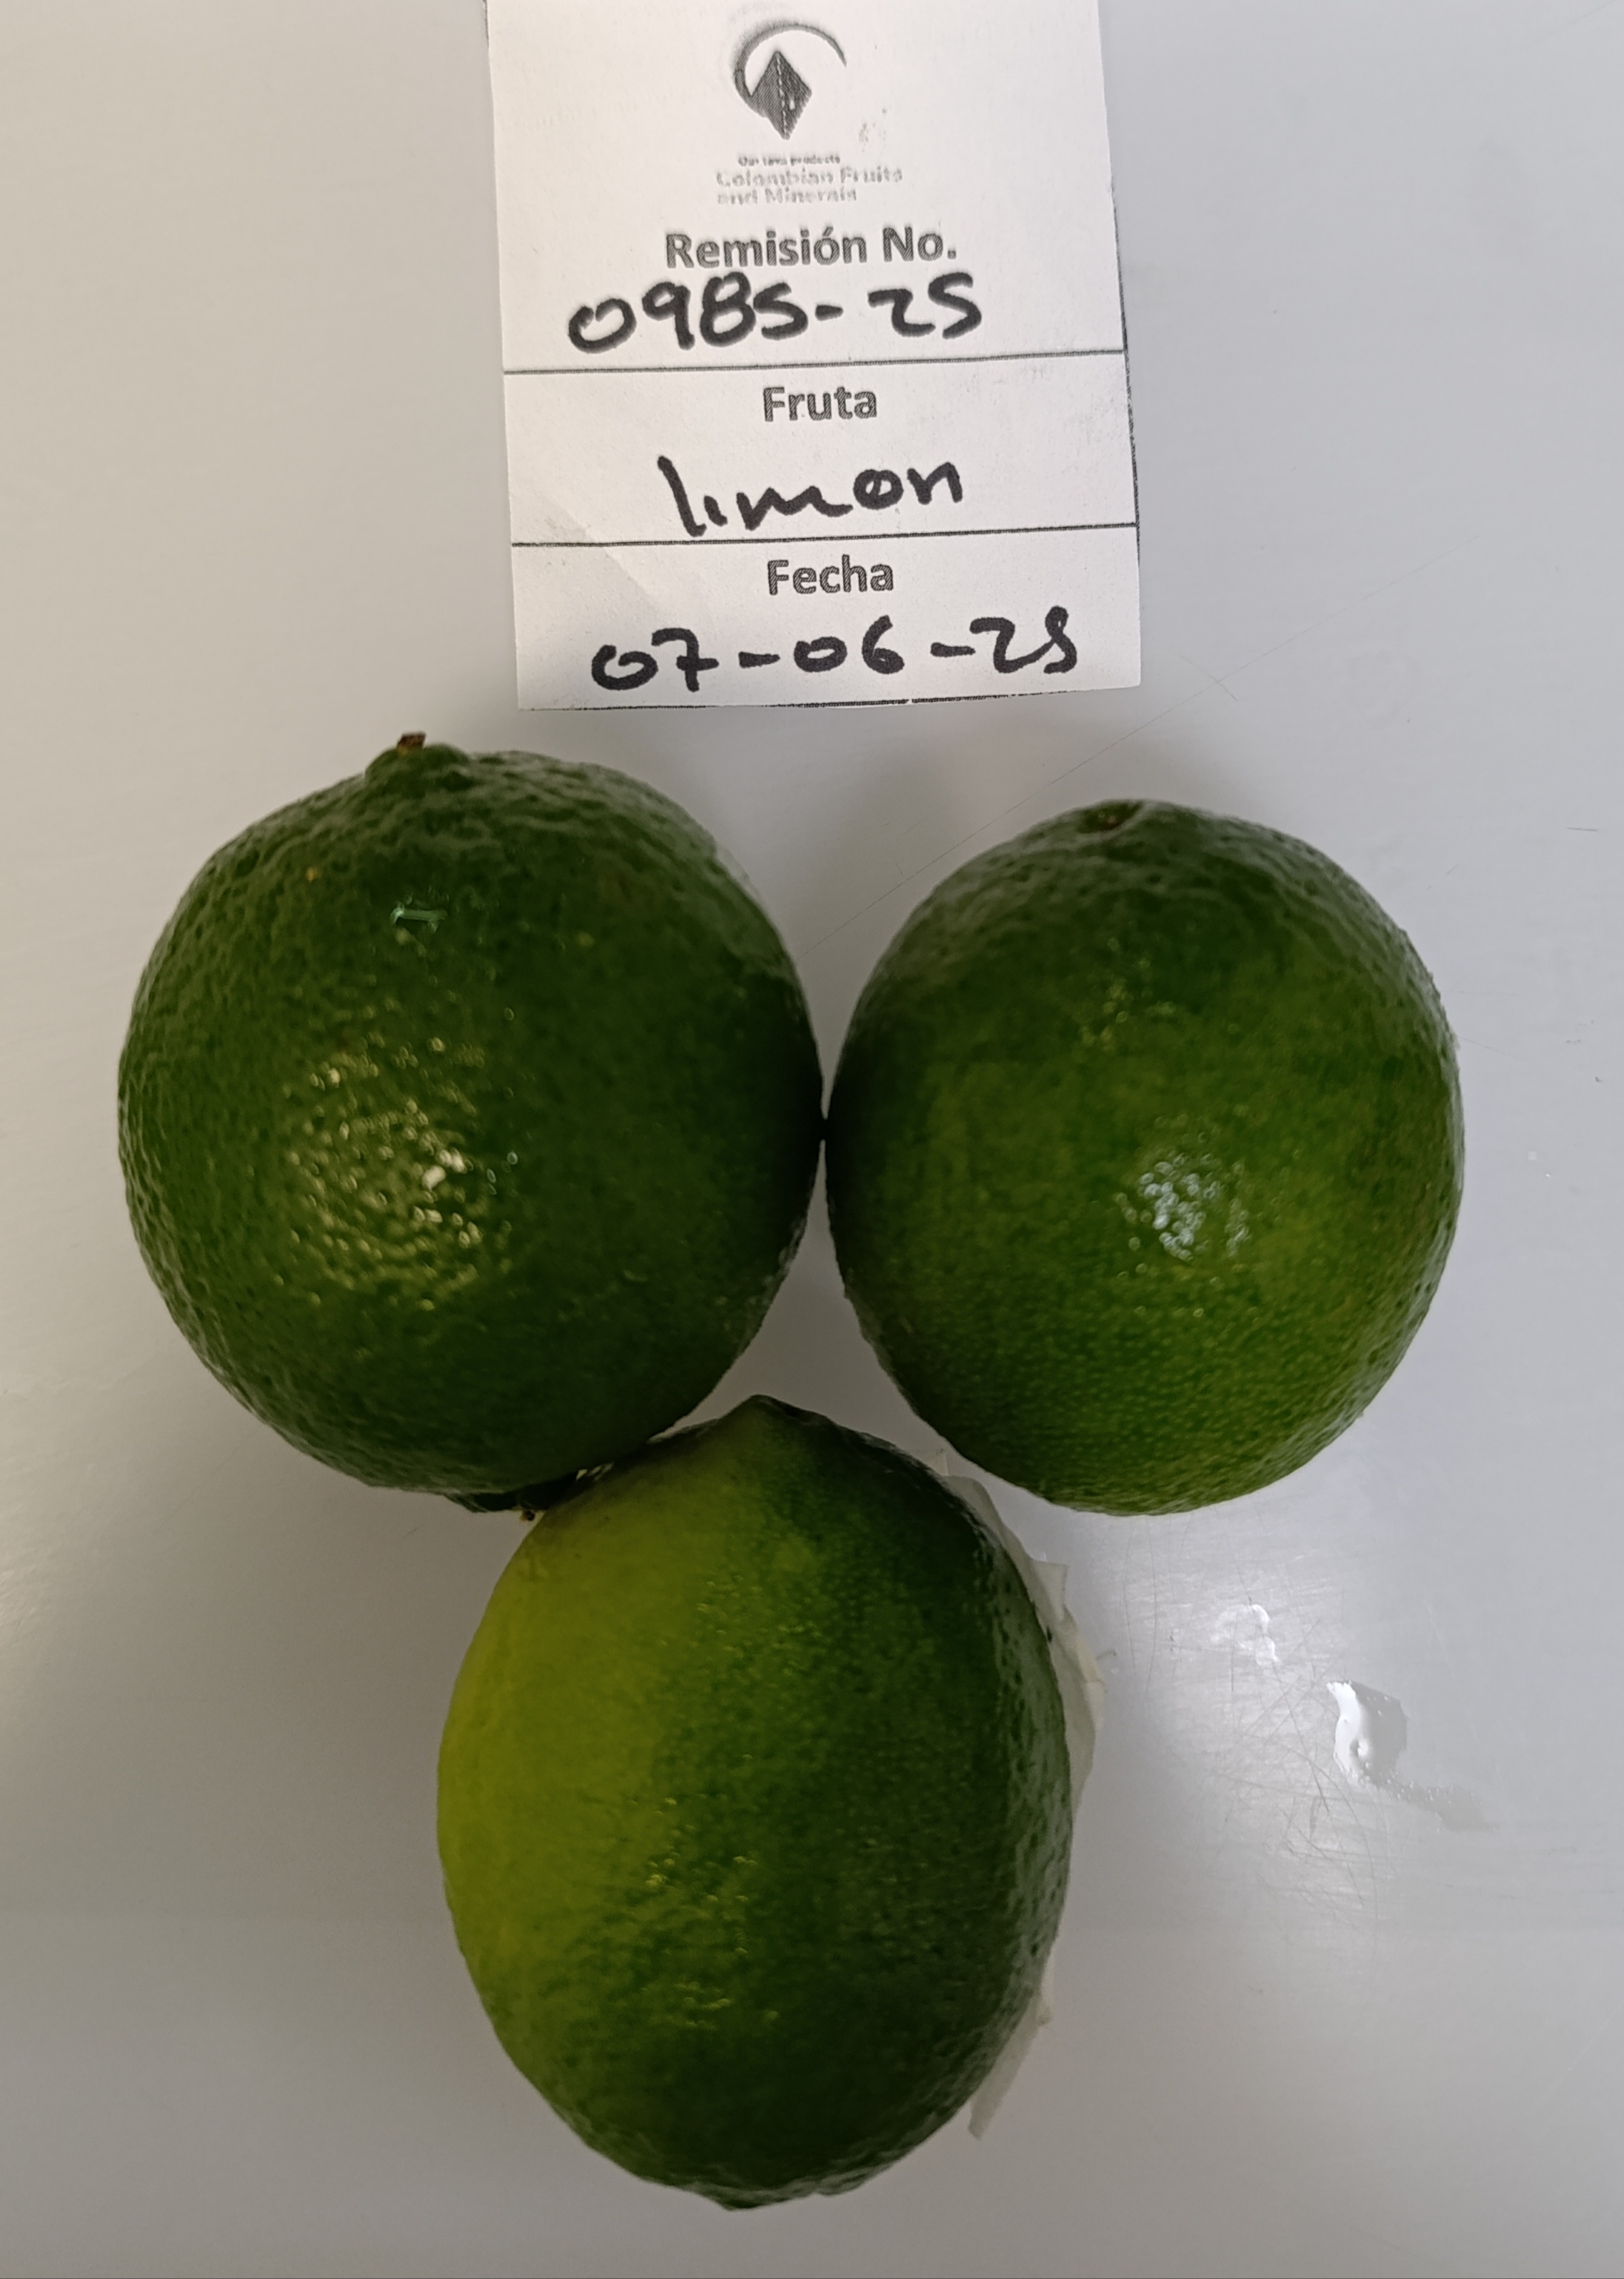 Our love products
Colombian Fruits
and Minerals
Remisión No.
0985-25
Fruta
limon
Fecha
07-06-25